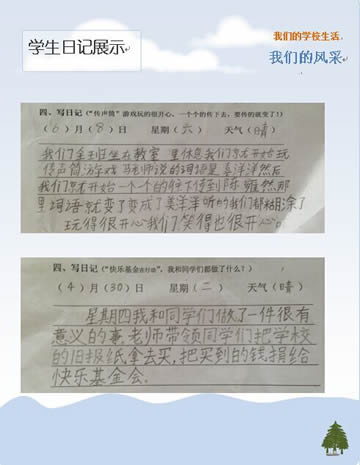 我们的学校生活
学生日记展示
我们的风采
四、写日记("传声筒"游戏玩的很开心,一个个的传下去,要传的就变了!)
(6)月(8)日 星期(六) 天气(晴)
我们全班坐在教室里休息我们就开始玩
传声筒游戏马老师说的词语是喜洋洋然后
我们就开始一个个的往下传到陈雅然那
里词语就变了变成了美洋洋听的我们都糊涂了
玩得很开心我们笑得也很开心。
四、写日记("快乐基金在行动",我和同学们都做了什么?)
(4)月(30)日 星期(二) 天气(晴)
星期四我和同学们做了一件很有
意义的事,老师带领同学们把学校
的旧报纸拿去买,把买到的钱捐给
快乐基金会。